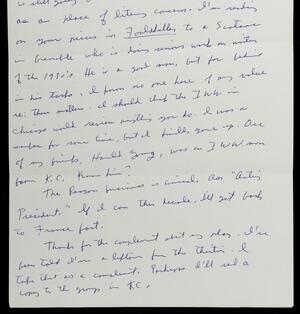 is still going
as an place of literary concern. I'm sending
on your pieces in Foolkiller to a Scotsman
in Grenoble who is doing serious work on writers
of the 1930's. He is a good man, but far behind
in his tasks. I know no one here of any value
re: these matters. I should think the IWW in
Chicago would review anything you do. I was a
member for some time, but it finally gave up. One
of my friends, Harold Young, was an IWW son
from K.C. Know him?
The Reagan business is criminal. An "Acting
President." If I can this decade, I'll get back
to France fast.
Thanks for the compliment abt my play. I've
been told I'm a leftover from the thirties. I
take that as a compliment. Perhaps I'll send a
copy to the group in K.C.